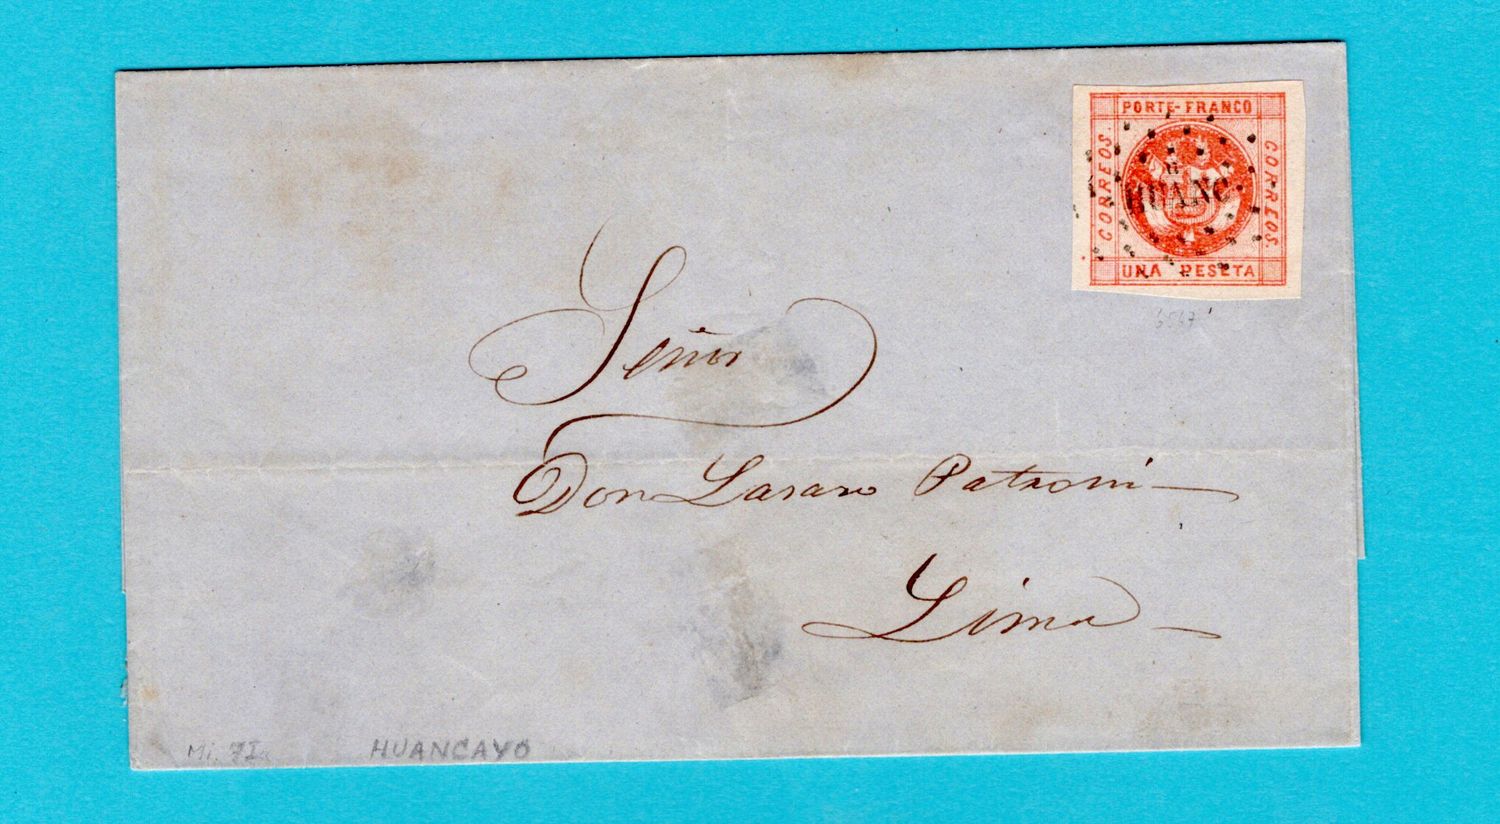 PORTE-FRANCO
CORREOS
CORREOS
HUANC
UNA PESETA
Señor
Don Lasaro Patroni
Lima
Mi. 7I
HUANCAYO